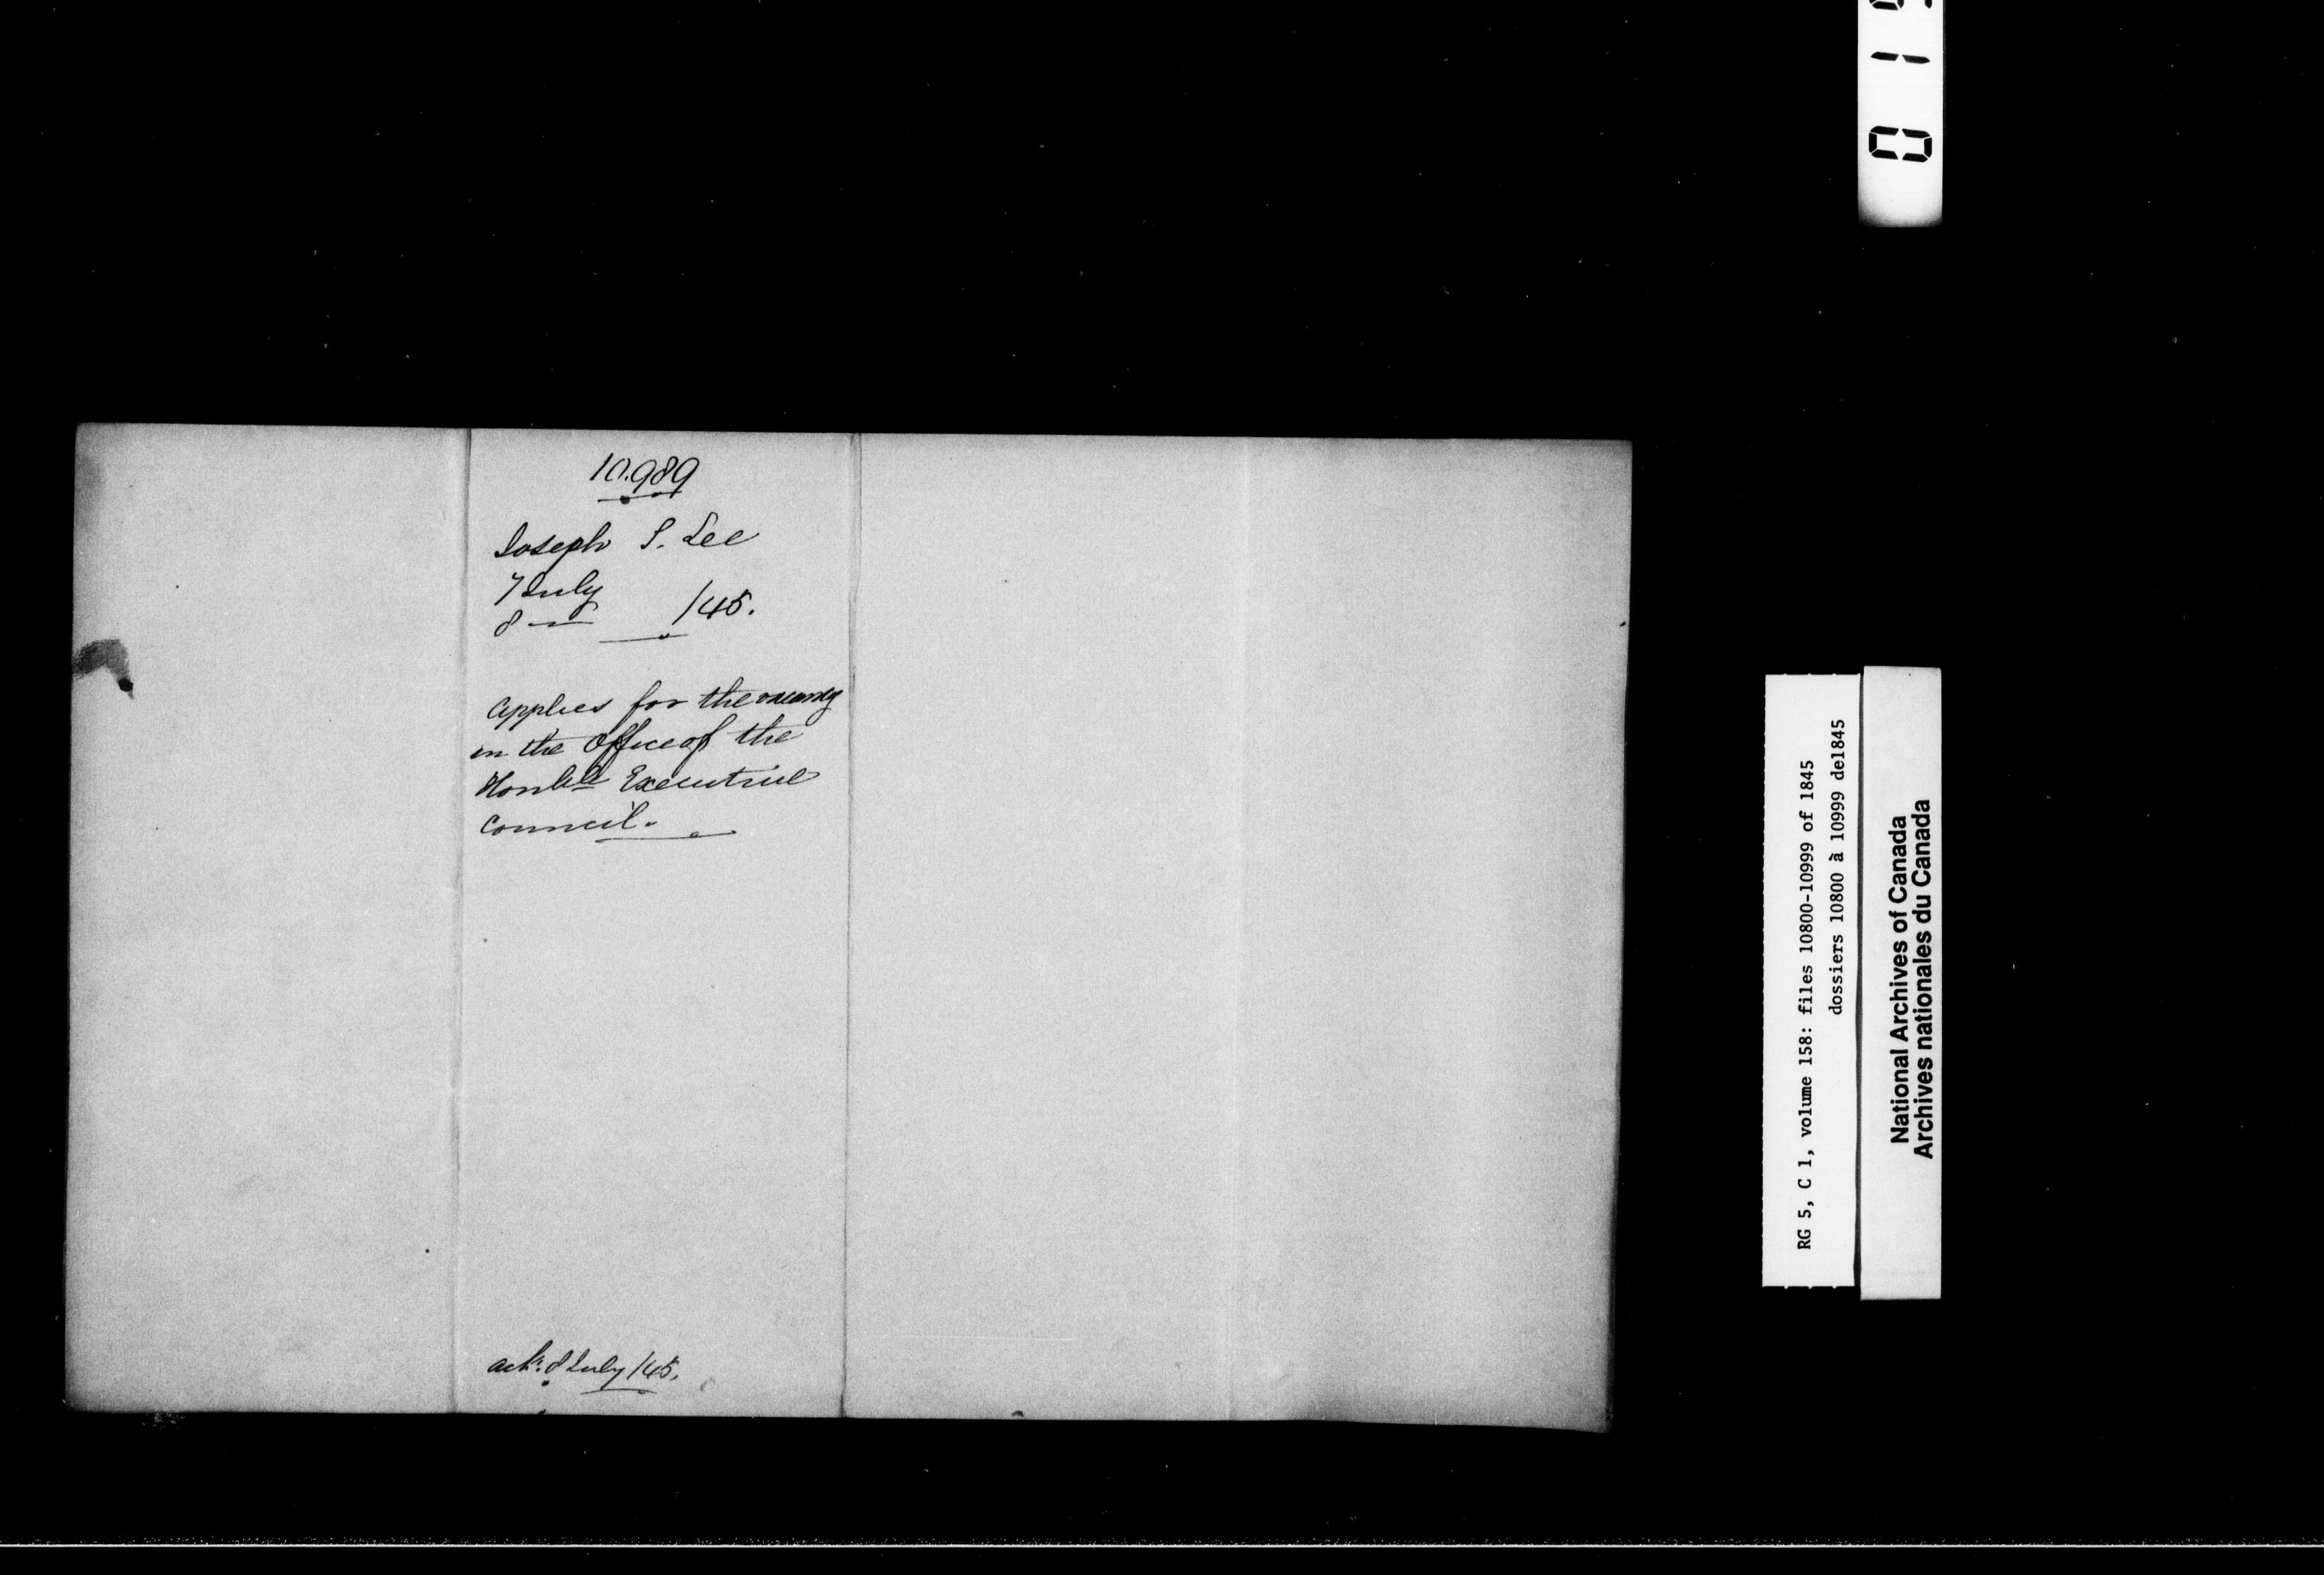 10.989
Joseph S. Lee
7 July
8 — /45.
Applies for the vacancy
in the Office of the
Honble Executive
Council.
ackd. 8 July /45.
RG 5, C 1, volume 158: files 10800-10999 of 1845
dossiers 10800 à 10999 de1845
National Archives of Canada
Archives nationales du Canada